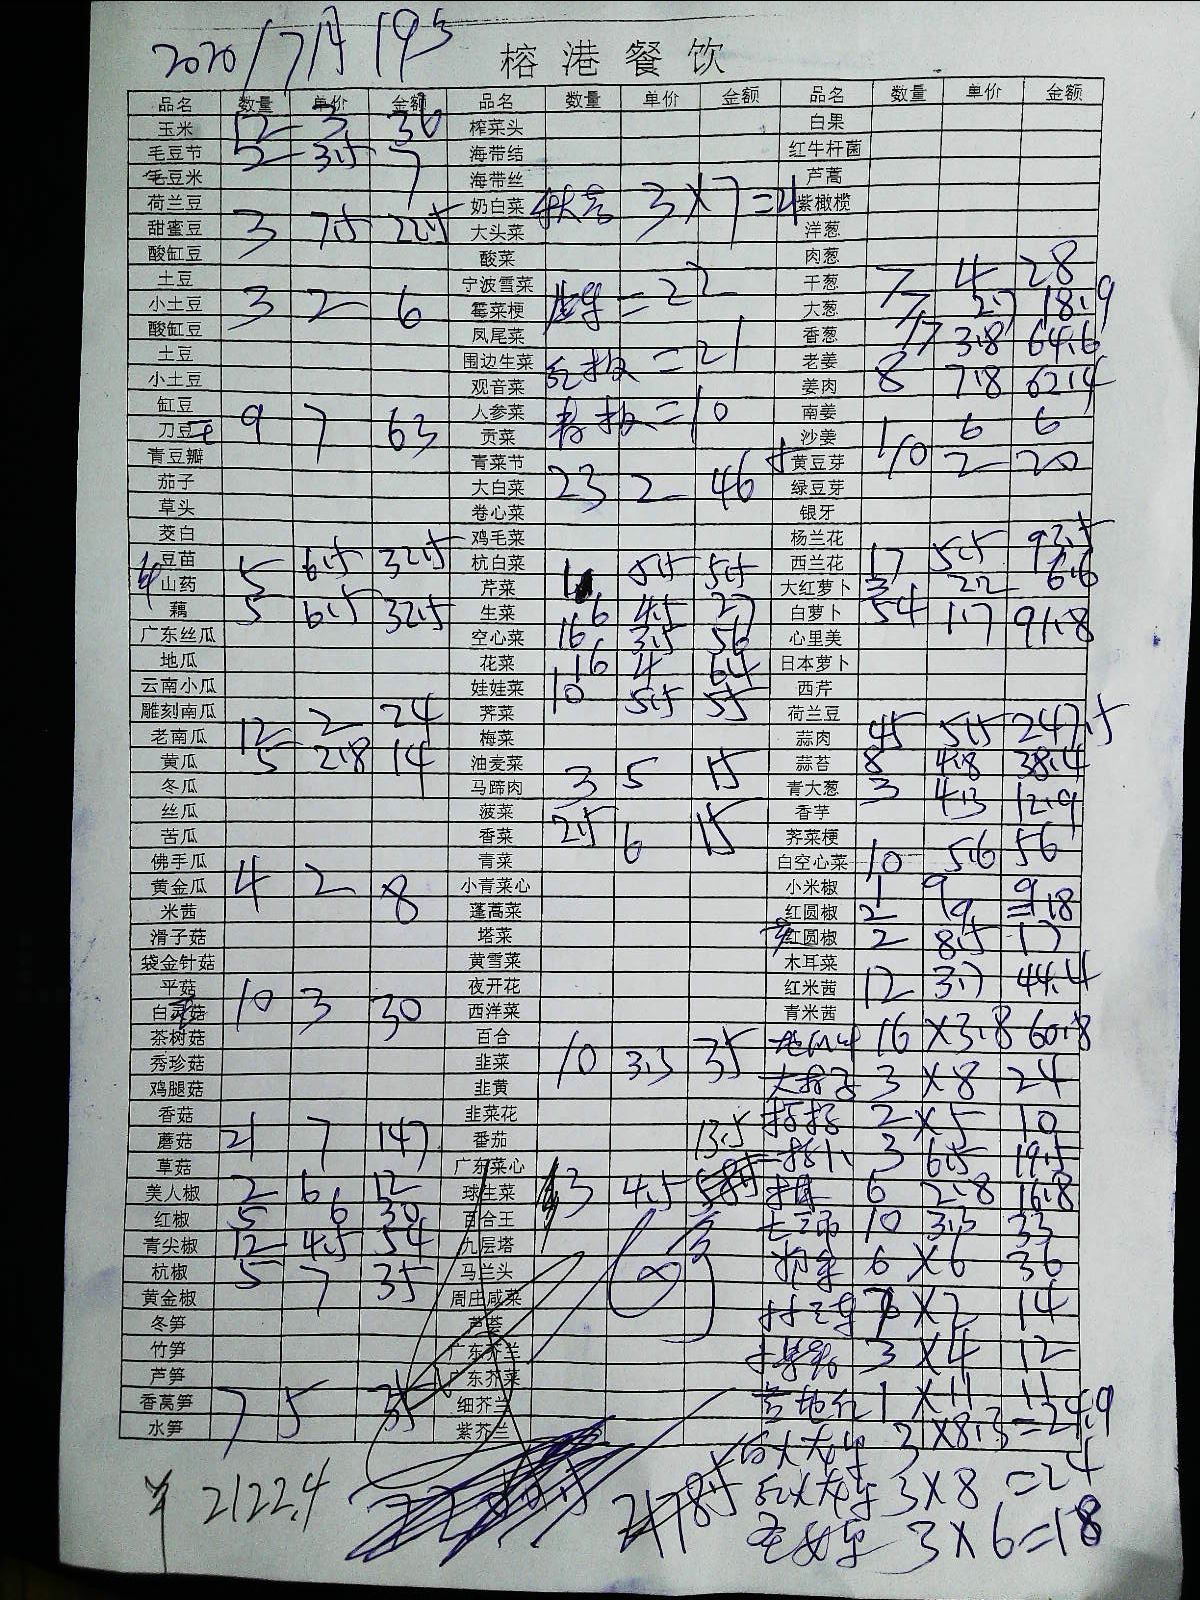 2020/7月19号
榕港餐饮
品名 数量 单价 金额 品名 数量 单价 金额 品名 数量 单价 金额
玉米 12 3 36 榨菜头 白果
毛豆节 2 3.5 7 海带结 红牛杆菌
毛豆米 海带丝 芦蒿
荷兰豆 奶白菜 3×7=21 紫橄榄
甜蜜豆 3 7.5 22.5 大头菜 洋葱
酸缸豆 酸菜 肉葱
土豆 宁波雪菜 =22 干葱 7 4 28
小土豆 3 2 6 霉菜梗 大葱 7 2.7 18.9
酸缸豆 凤尾菜 香葱 17 3.8 64.6
土豆 围边生菜 红椒=21 老姜 8 7.8 62.4
小土豆 观音菜 姜肉
缸豆 人参菜 青椒=10 南姜
刀豆 9 7 63 贡菜 沙姜 1 6 6
青豆瓣 青菜节 黄豆芽 10 2 20
茄子 大白菜 23 2 46 绿豆芽
草头 卷心菜 银牙
茭白 鸡毛菜 杨兰花
豆苗 5 6.5 32.5 杭白菜 西兰花 17 5.5 93.5
山药 芹菜 1 5.5 5.5 大红萝卜 3 2.2 6.6
藕 5 6.5 32.5 生菜 6 4.5 27 白萝卜 54 1.7 91.8
广东丝瓜 空心菜 16 3.5 56 心里美
地瓜 花菜 16 4 64 日本萝卜
云南小瓜 娃娃菜 10 5.5 55 西芹
雕刻南瓜 荠菜 荷兰豆
老南瓜 12 2 24 梅菜 蒜肉 45 5.5 247.5
黄瓜 5 2.8 14 油麦菜 蒜苔 8 4.8 38.4
冬瓜 马蹄肉 3 5 15 青大葱 3 4.3 12.9
丝瓜 菠菜 香芋
苦瓜 香菜 2.5 6 15 荠菜梗
佛手瓜 青菜 白空心菜 10 5.6 56
黄金瓜 4 2 8 小青菜心 小米椒 1 9 9
米茜 蓬蒿菜 红圆椒 2 9 =18
滑子菇 塔菜 红圆椒 2 8.5 17
袋金针菇 黄雪菜 木耳菜
平菇 夜开花 红米茜 12 3.7 44.4
白灵菇 10 3 30 西洋菜 青米茜
茶树菇 百合 16×3.8 60.8
秀珍菇 韭菜 10 3.5 35 3×8 24
鸡腿菇 韭黄
香菇 韭菜花 2×5 10
蘑菇 21 7 147 番茄 13.5 3 6.5 19.5
草菇 广东菜心
美人椒 2 6 12 球生菜 3 4.5 6 2.8 16.8
红椒 5 6 30 百合王 10 3.3 33
青尖椒 12 4.5 54 九层塔 6×6 36
杭椒 5 7 35 马兰头
黄金椒 周庄咸菜 7×2 14
冬笋 芦荟
竹笋 广东芥兰 3×4 12
芦笋 广东芥菜
香莴笋 7 5 35 细芥兰 1×11 11
水笋 紫芥兰 白火龙果 3×8.3=24.9
¥ 2122.4 2178.5 红火龙果 3×8=24
圣女果 3×6=18